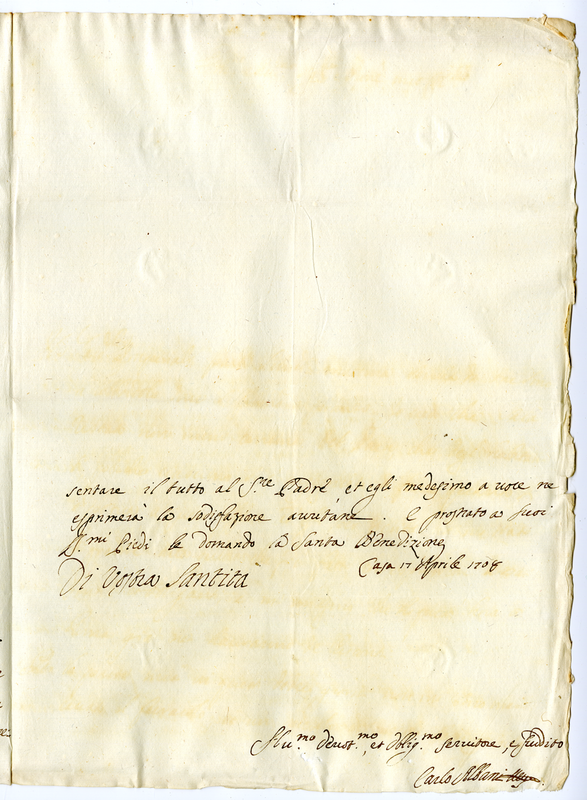 sentare il tutto al S.re Padre, et egli medesimo a voce ne
esprimerà la sodisfazione avutane. E prostrato a suoi
S.mi Piedi le domando la Santa Benedizione
Casa 17 Aprile 1708
Di Vostra Santità
Hu.mo devot.mo, et oblig.mo servitore, e suddito
Carlo Albani